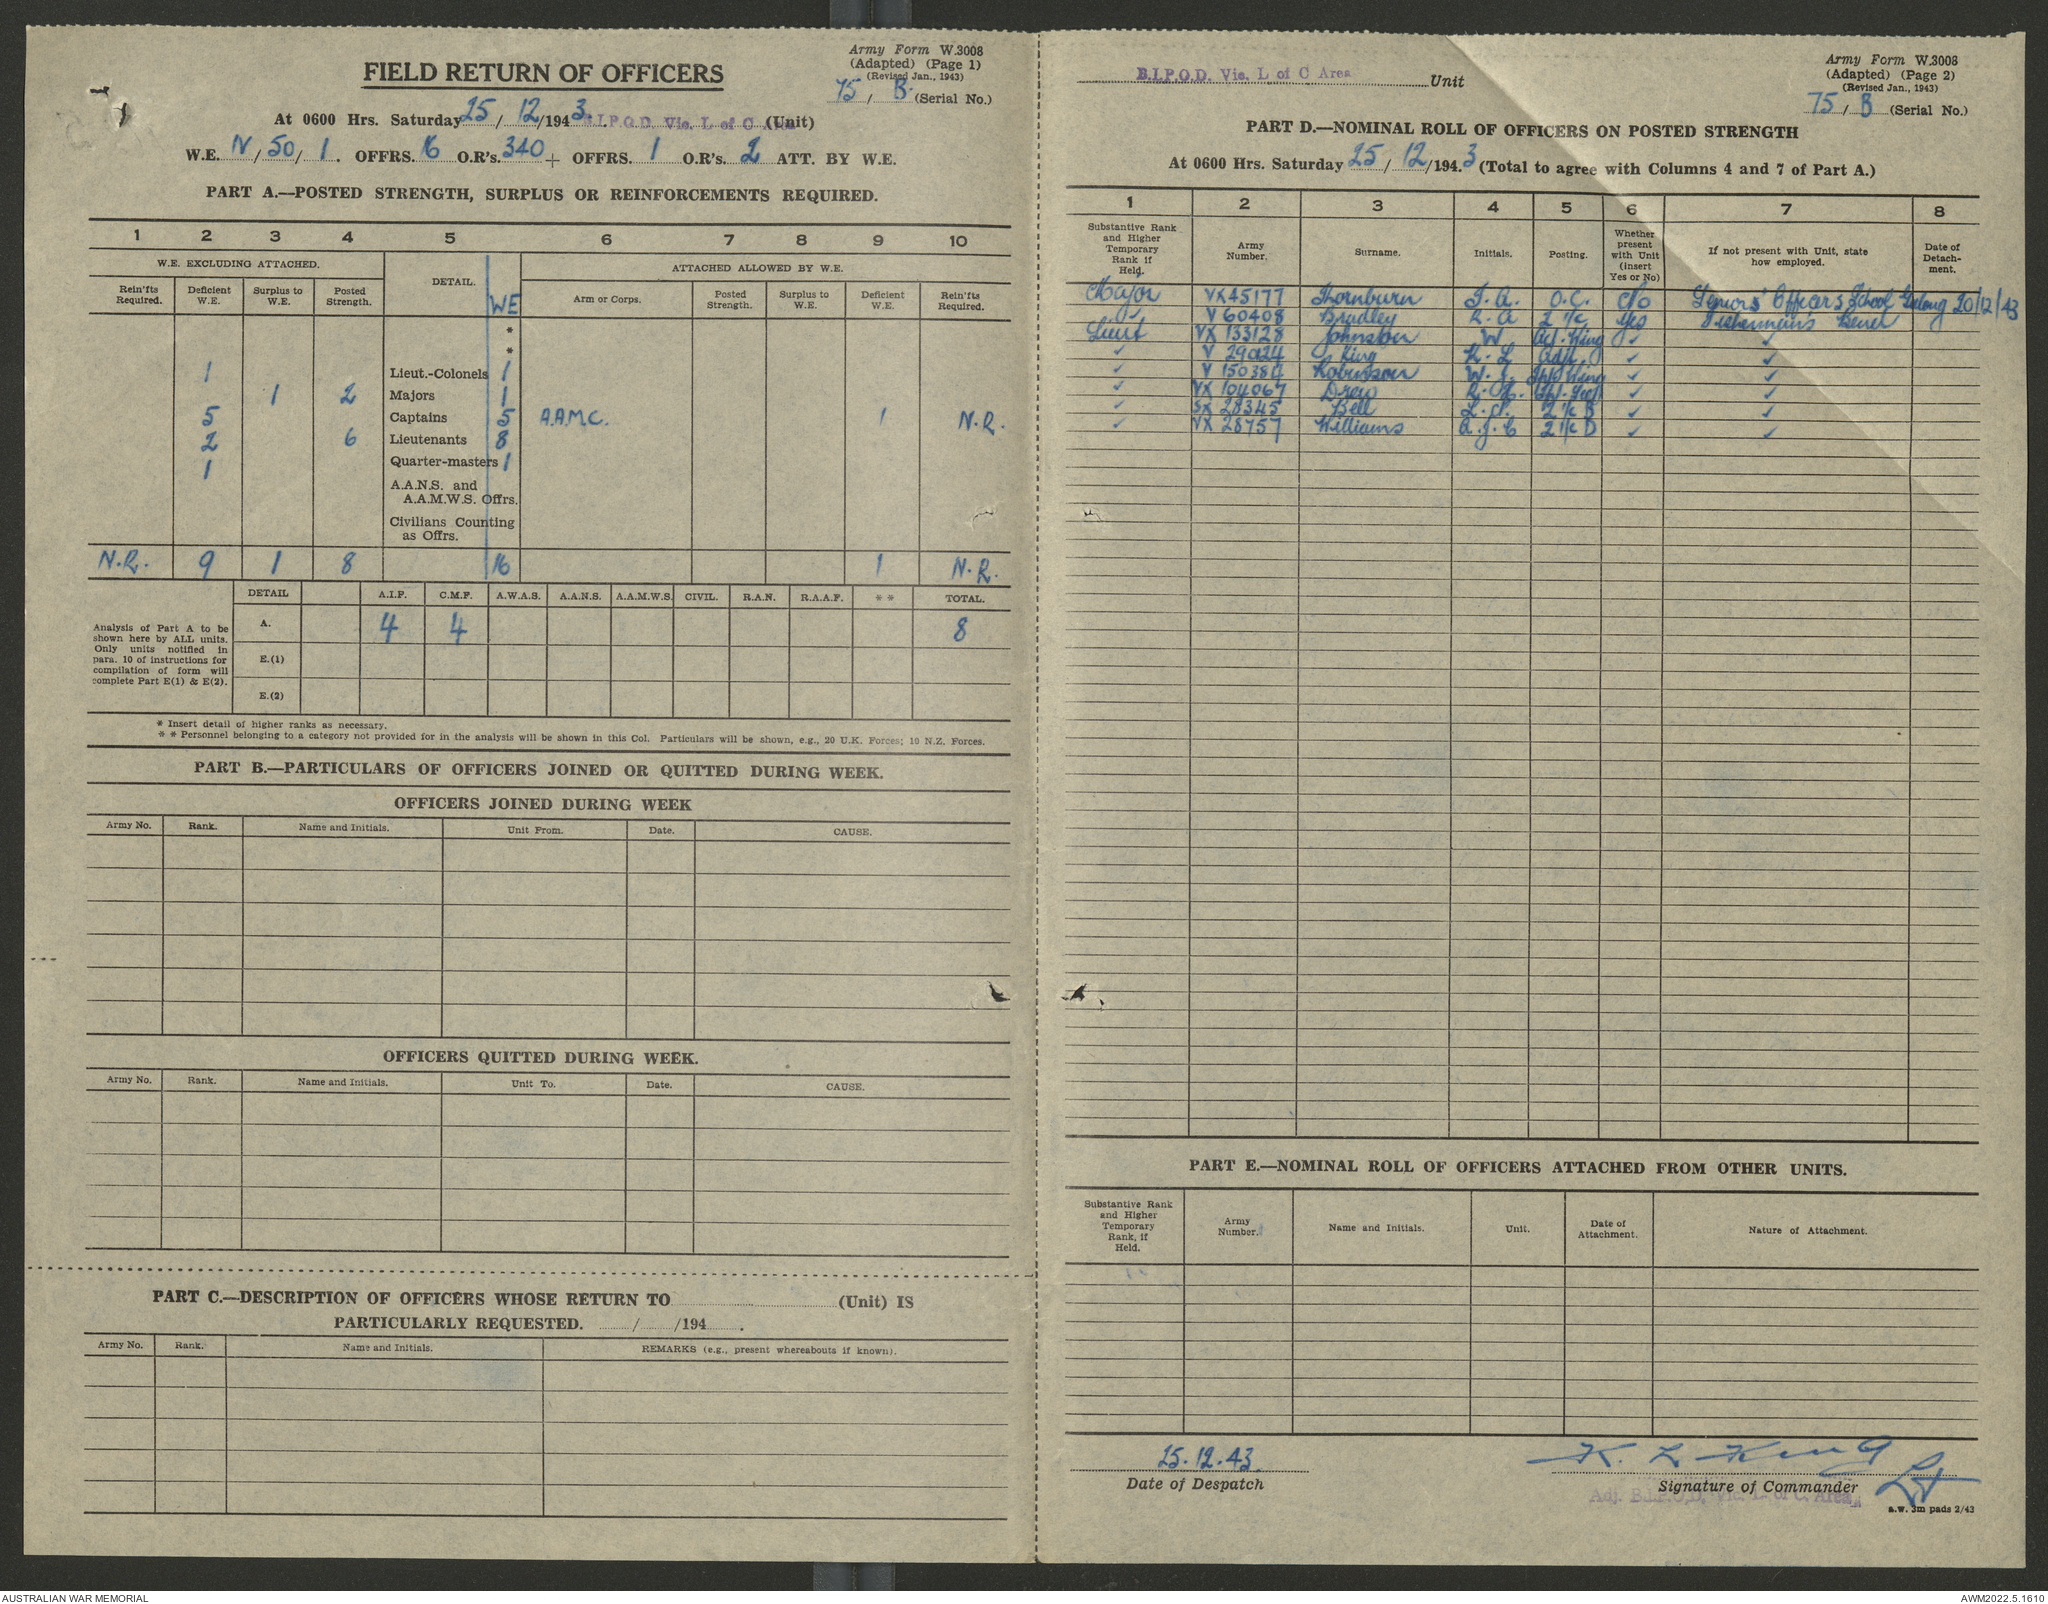 Army Form W.3008
(Adapted) (Page 1)
(Revised Jan., 1943)
FIELD RETURN OF OFFICERS
75 / B. (Serial No.)
At 0600 Hrs. Saturday 25 / 12 /1943. B.I.P.O.D. Vic. L of C Area (Unit)
W.E. IV / 50 / 1. OFFRS. 16 O.R's. 340 + OFFRS. 1 O.R's. 2 ATT. BY W.E.
PART A.—POSTED STRENGTH, SURPLUS OR REINFORCEMENTS REQUIRED.
1 2 3 4 5 6 7 8 9 10
W.E. EXCLUDING ATTACHED. DETAIL. WE ATTACHED ALLOWED BY W.E.
Rein'fts Required. Deficient W.E. Surplus to W.E. Posted Strength. Arm or Corps. Posted Strength. Surplus to W.E. Deficient W.E. Rein'fts Required.
*
*
1 Lieut.-Colonels 1
1 2 Majors 1
5 Captains 5 A.A.M.C. 1 N.R.
2 6 Lieutenants 8
1 Quarter-masters 1
A.A.N.S. and
A.A.M.W.S. Offrs.
Civilians Counting
as Offrs.
N.R. 9 1 8 16 1 N.R.
DETAIL A.I.F. C.M.F. A.W.A.S. A.A.N.S. A.A.M.W.S. CIVIL. R.A.N. R.A.A.F. * * TOTAL.
Analysis of Part A to be
shown here by ALL units.
Only units notified in
para. 10 of instructions for
compilation of form will
complete Part E(1) & E(2).
A. 4 4 8
E.(1)
E.(2)
* Insert detail of higher ranks as necessary.
* * Personnel belonging to a category not provided for in the analysis will be shown in this Col. Particulars will be shown, e.g., 20 U.K. Forces; 10 N.Z. Forces.
PART B.—PARTICULARS OF OFFICERS JOINED OR QUITTED DURING WEEK.
OFFICERS JOINED DURING WEEK
Army No. Rank. Name and Initials. Unit From. Date. CAUSE.
OFFICERS QUITTED DURING WEEK.
Army No. Rank. Name and Initials. Unit To. Date. CAUSE.
PART C.—DESCRIPTION OF OFFICERS WHOSE RETURN TO (Unit) IS
PARTICULARLY REQUESTED. / /194 .
Army No. Rank. Name and Initials. REMARKS (e.g., present whereabouts if known).
B.I.P.O.D. Vic. L of C Area Unit
Army Form W.3008
(Adapted) (Page 2)
(Revised Jan., 1943)
75 / B (Serial No.)
PART D.—NOMINAL ROLL OF OFFICERS ON POSTED STRENGTH
At 0600 Hrs. Saturday 25 / 12 /194.3 (Total to agree with Columns 4 and 7 of Part A.)
1 2 3 4 5 6 7 8
Substantive Rank and Higher Temporary Rank if Held. Army Number. Surname. Initials. Posting. Whether present with Unit (insert Yes or No) If not present with Unit, state how employed. Date of Detach-ment.
Major VX45177 Thornburn T. A. O.C. No Seniors' Officers School Geelong 20/12/43
✓ V 60408 Bradley R. A 2 i/c Yes Fishermen's Bend
Lieut VX 133128 Johnston W ✓ ✓
✓ V 29024 King K. L Adjt. ✓ ✓
✓ V 150384 Robinson W. ✓ ✓
✓ VX 104067 Drew ✓ ✓
✓ SX 28345 Bell 2 i/c B ✓ ✓
✓ VX 28757 Williams A. J. C 2 i/c D ✓ ✓
PART E.—NOMINAL ROLL OF OFFICERS ATTACHED FROM OTHER UNITS.
Substantive Rank and Higher Temporary Rank, if Held. Army Number. Name and Initials. Unit. Date of Attachment. Nature of Attachment.
25.12.43.
Date of Despatch
K. L King Lt
Signature of Commander
Adj. B.I.P.O.D. Vic. L. of C. Area
a.w. 3m pads 2/43
AUSTRALIAN WAR MEMORIAL
AWM2022.5.1610